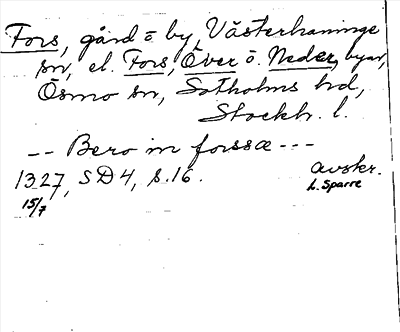 Fors, gård o by, Västerhaninge
sn, el. Fors, Över o. Neder, byar,
Ösmo sn, Sotholms hd,
Stockh. l.
-- Bero in forssæ ---
1327, SD4, s.16.
15/7
avskr.
L. Sparre